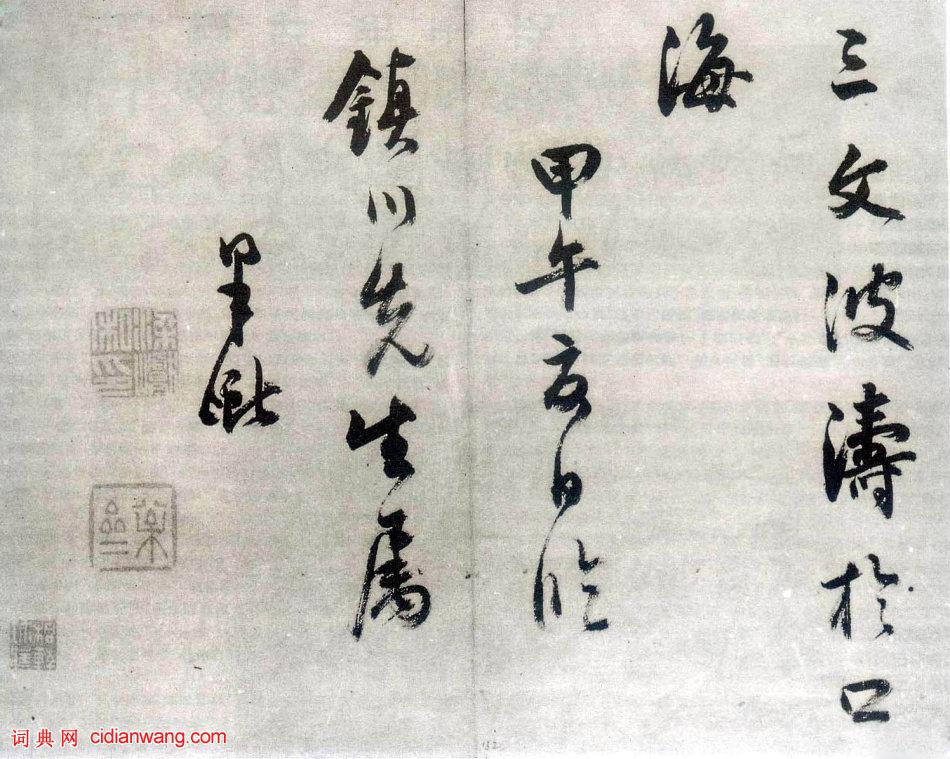 三文波濤於口
海
甲午夏日臨
鎮川先生屬
词典网 cidianwang.com
152